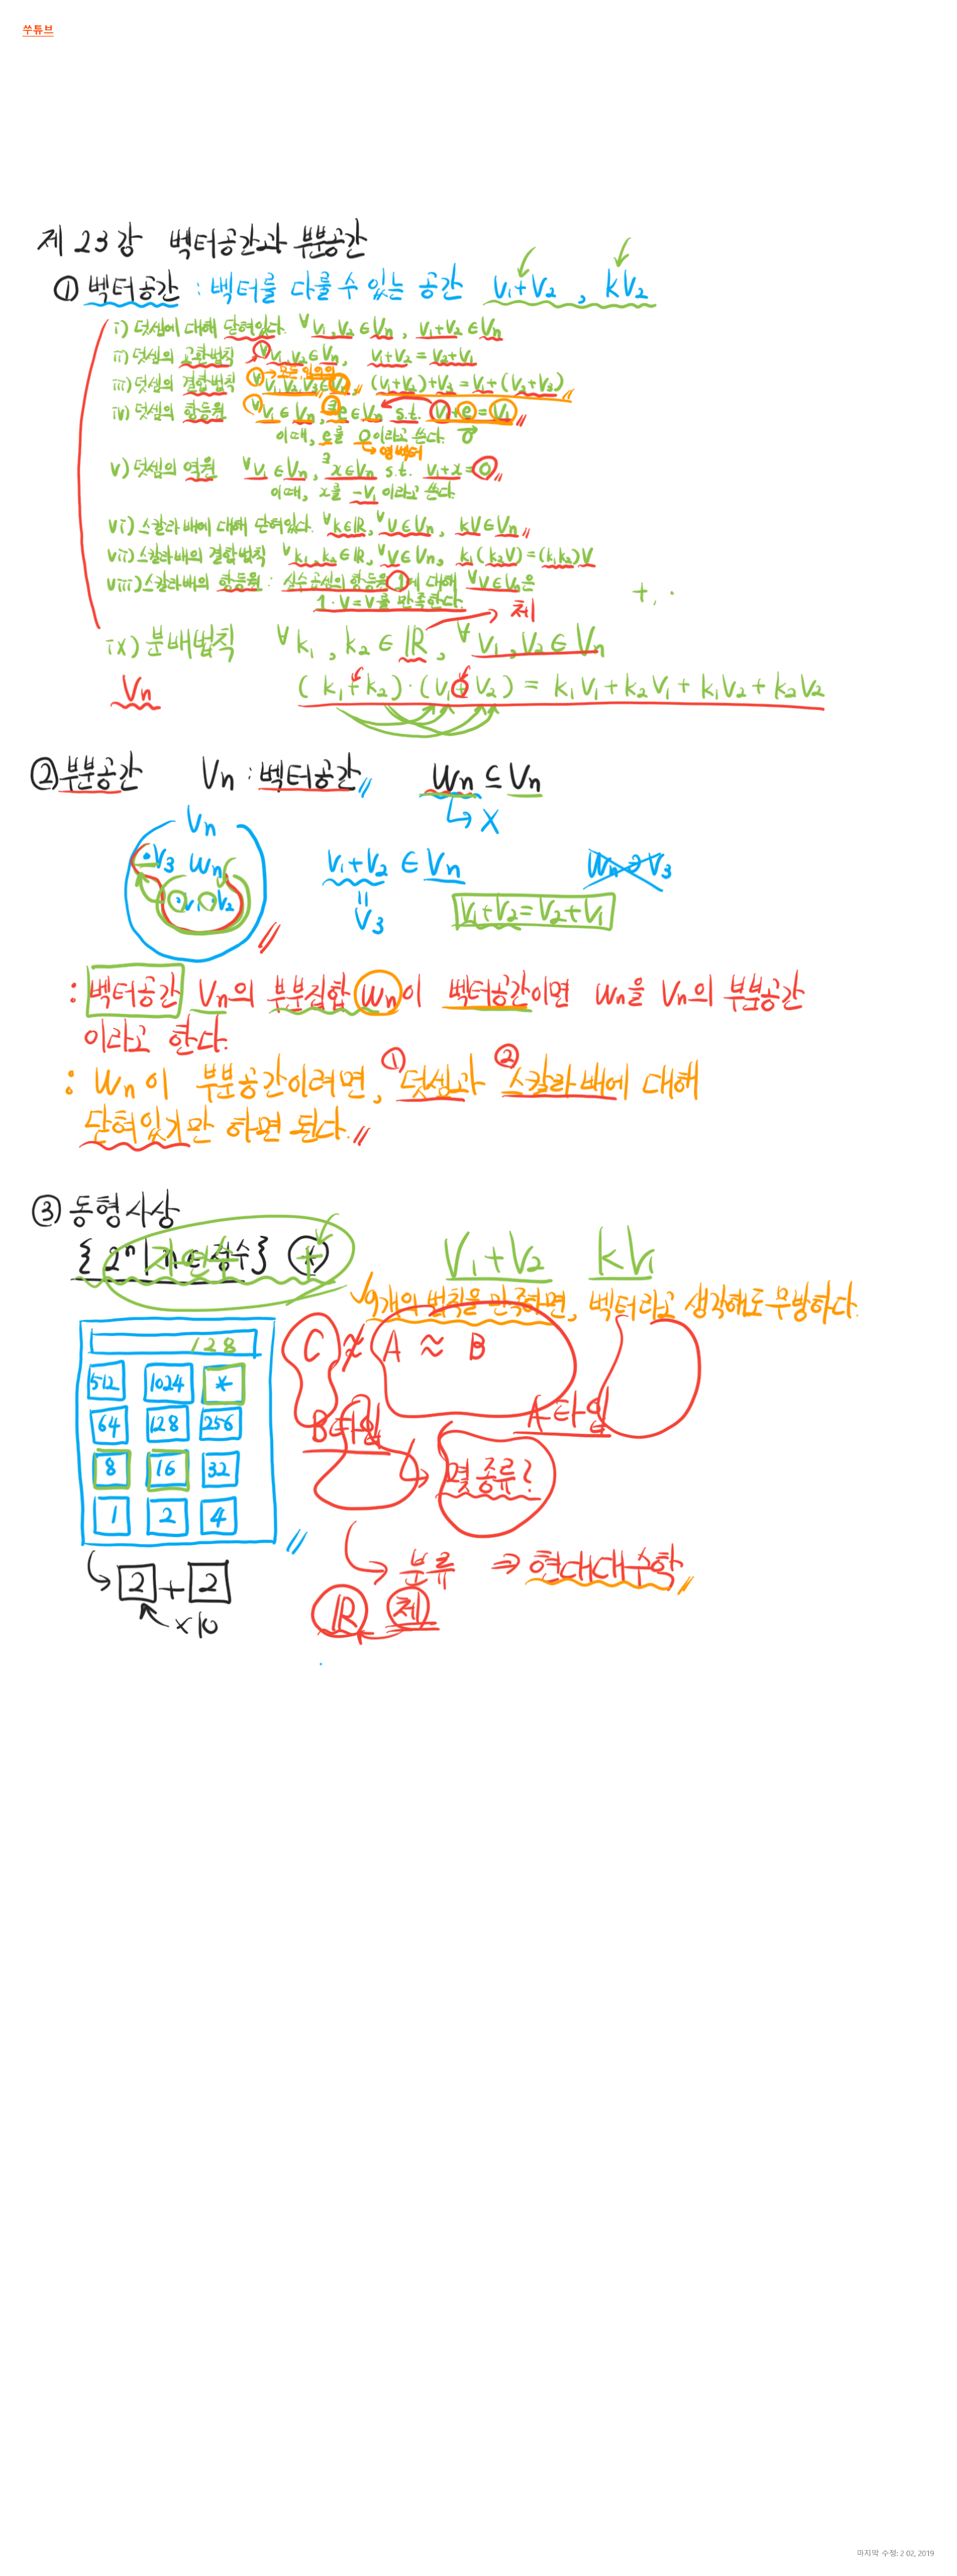 쑤튜브
제 23강 벡터공간과 부분공간
① 벡터공간 : 벡터를 다룰 수 있는 공간 V₁+V₂ , kV₂
i) 덧셈에 대해 닫혀있다. ∀V₁,V₂∈Vn , V₁+V₂∈Vn
ii) 덧셈의 교환법칙 ∀V₁,V₂∈Vn, V₁+V₂=V₂+V₁
→모든, 임의의
iii) 덧셈의 결합법칙 ∀V₁,V₂,V₃∈Vn, (V₁+V₂)+V₃=V₁+(V₂+V₃)
iv) 덧셈의 항등원 ∀V₁∈Vn, ∃e∈Vn s.t. V₁+e=V₁
이때, e를 0이라고 쓴다. 0⃗
→영벡터
v) 덧셈의 역원 ∀V₁∈Vn, ∃x∈Vn s.t. V₁+x=0
이때, x를 -V₁이라고 쓴다.
vi) 스칼라배에 대해 닫혀있다. ∀k∈ℝ, ∀V∈Vn, kV∈Vn
vii) 스칼라배의 결합법칙 ∀k₁,k₂∈ℝ, ∀V∈Vn, k₁(k₂V)=(k₁k₂)V
viii) 스칼라배의 항등원 : 실수 곱셈의 항등원 1에 대해 ∀V∈Vn은
1·V=V를 만족한다.
→ 체
+, ·
ix) 분배법칙 ∀k₁,k₂∈ℝ, ∀V₁,V₂∈Vn
Vn (k₁+k₂)·(V₁+V₂) = k₁V₁+k₂V₁+k₁V₂+k₂V₂
② 부분공간 Vn : 벡터공간 Wn ⊆ Vn
→ X
Vn
·V₃ Wn
·V₁ ·V₂
V₁+V₂ ∈ Vn Wn∌V₃
=
V₃
V₁+V₂=V₂+V₁
: 벡터공간 Vn의 부분집합 Wn이 벡터공간이면 Wn을 Vn의 부분공간
이라고 한다.
: Wn이 부분공간이려면, ①덧셈과 ②스칼라배에 대해
닫혀있기만 하면 된다.
③ 동형사상
{ 2ⁿ | n∈정수 } (×)
자연수 +
V₁+V₂ kV₁
9개의 법칙을 만족하면, 벡터라고 생각해도 무방하다.
128
512 1024 *
64 128 256
8 16 32
1 2 4
C ≉ A ≈ B
B타입 A타입
→ 몇 종류?
→ 분류 ⇒ 현대대수학
ℝ 체
→ 2 + 2
×10
마지막 수정: 2 02, 2019